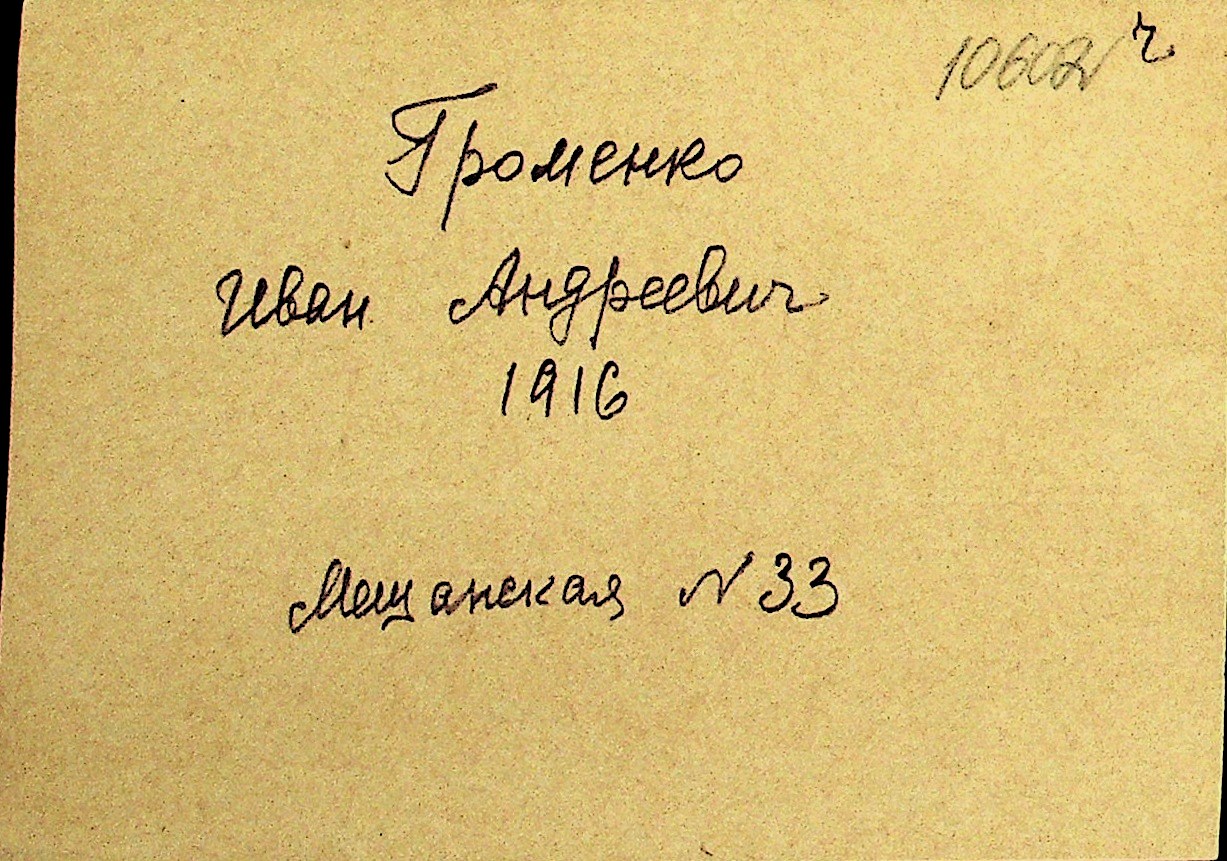 10602 ч
Громенко
Иван Андреевич
1916
Мещанская N 33